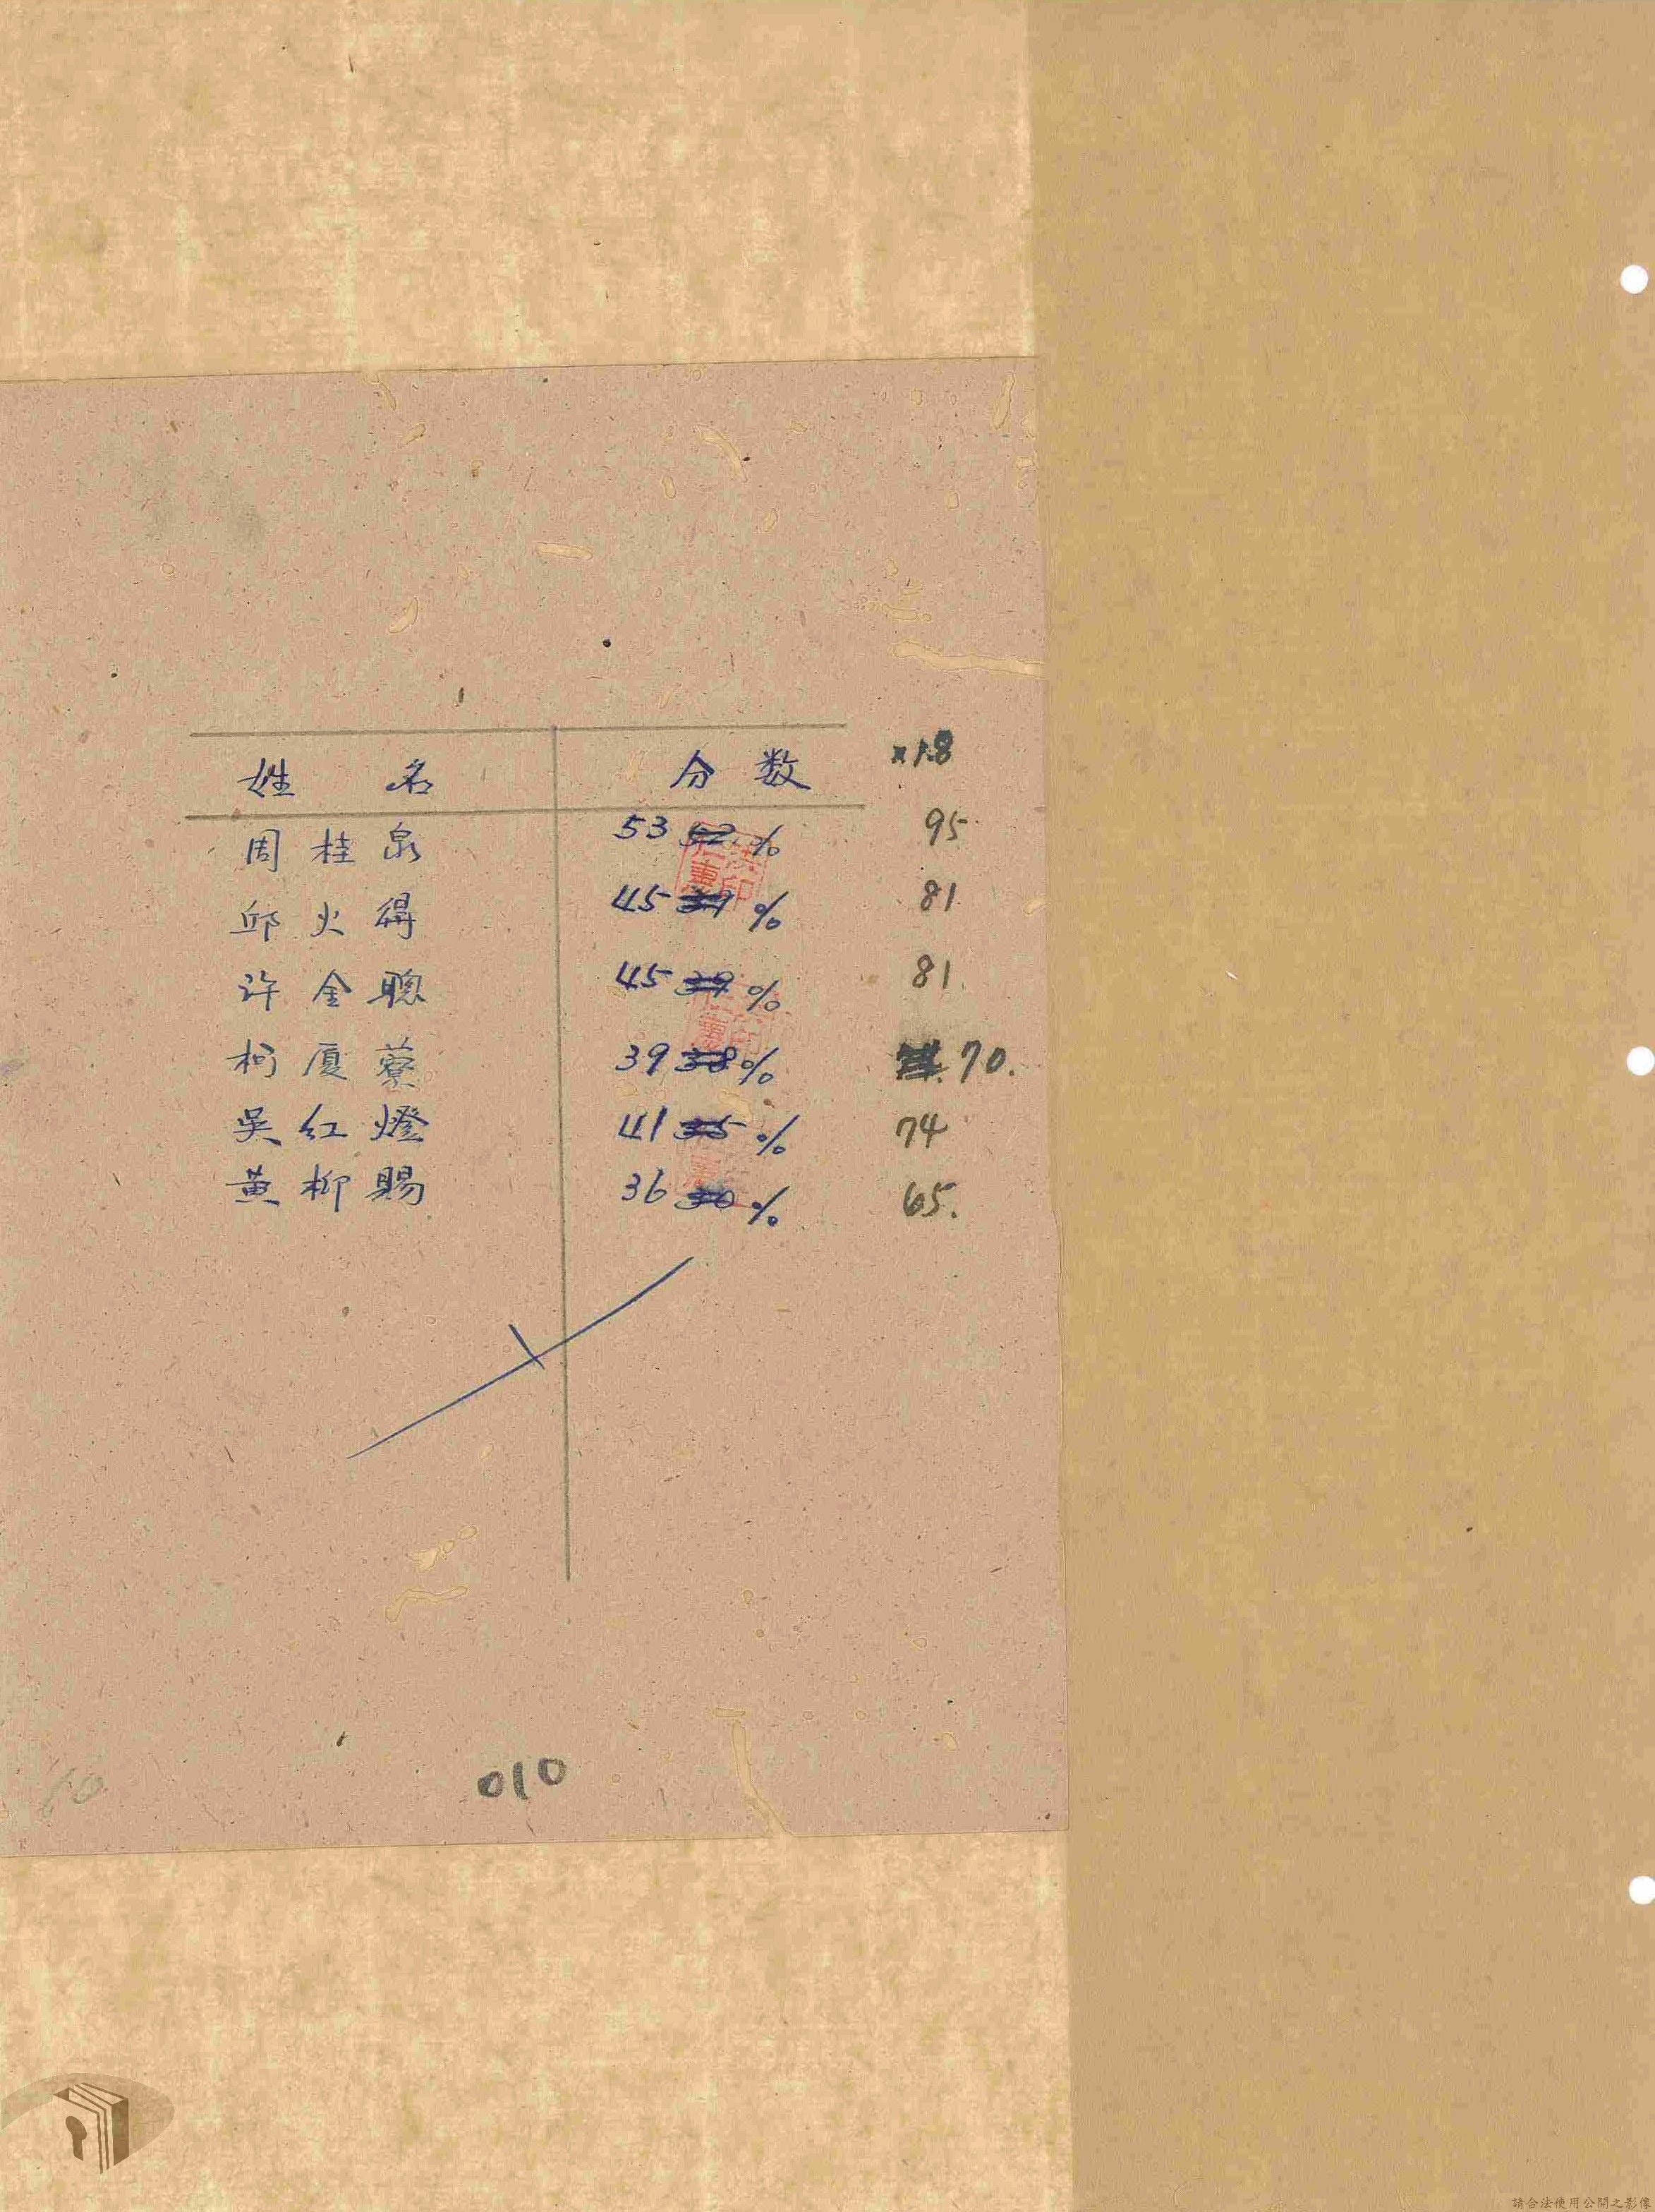 姓名 分数 ×1.8
周桂泉 53 % 95
邱火得 45 39 % 81
许金聰 45 39 % 81
柯厦藔 39 38 % 70.
吳红燈 41 35 % 74
黄柳賜 36 30 % 65.
010
10
請合法使用公開之影像